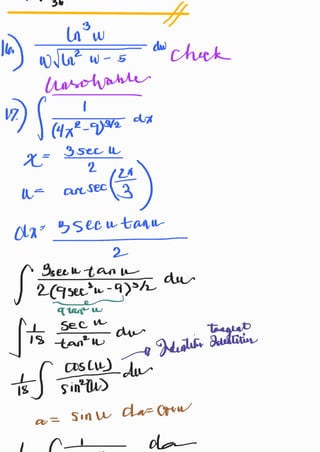 36
16.) ln³ w / w√(ln² w - 5) dw check
Unsolvable
17.) ∫ 1 / (4x² - 9)^3/2 dx
x = 3 sec u / 2
u = arcsec(2x / 3)
dx = 3 sec u tan u / 2
∫ 3 sec u tan u / 2(9 sec² u - 9)^3/2 du
9 tan² u
∫ 1/18 sec u / tan² u du
1/18 ∫ cos(u) / sin²(u) du
a = sin u da = cos u